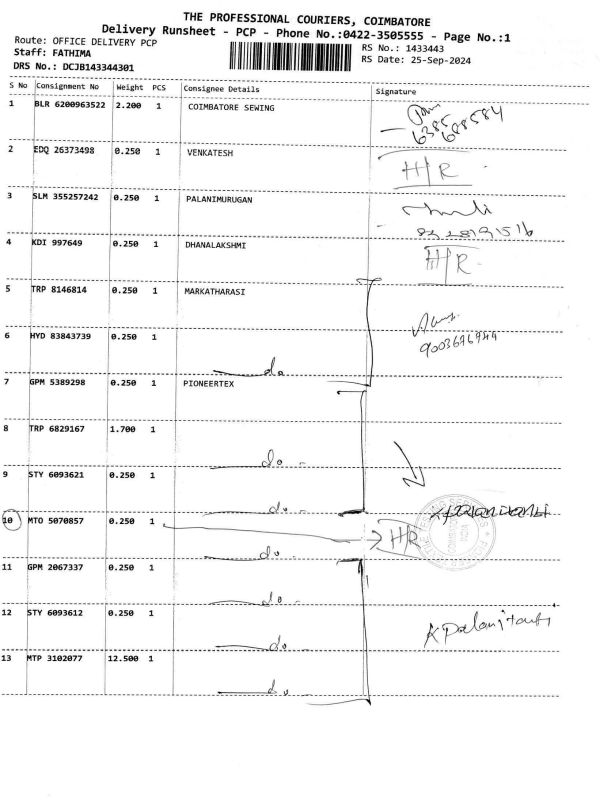 THE PROFESSIONAL COURIERS, COIMBATORE
Delivery Runsheet - PCP - Phone No.:0422-3505555 - Page No.:1
Route: OFFICE DELIVERY PCP
Staff: FATHIMA
DRS No.: DCJB143344301
RS No.: 1433443
RS Date: 25-Sep-2024
S No Consignment No Weight PCS Consignee Details Signature
1 BLR 6200963522 2.200 1 COIMBATORE SEWING
2 EDQ 26373498 0.250 1 VENKATESH H/R
3 SLM 355257242 0.250 1 PALANIMURUGAN
4 KDI 997649 0.250 1 DHANALAKSHMI H/R
5 TRP 8146814 0.250 1 MARKATHARASI
6 HYD 83843739 0.250 1 do
7 GPM 5389298 0.250 1 PIONEERTEX
8 TRP 6829167 1.700 1 do
9 STY 6093621 0.250 1 do
10 MTO 5070857 0.250 1 do H/R
11 GPM 2067337 0.250 1 do
12 STY 6093612 0.250 1 do
13 MTP 3102077 12.500 1 do